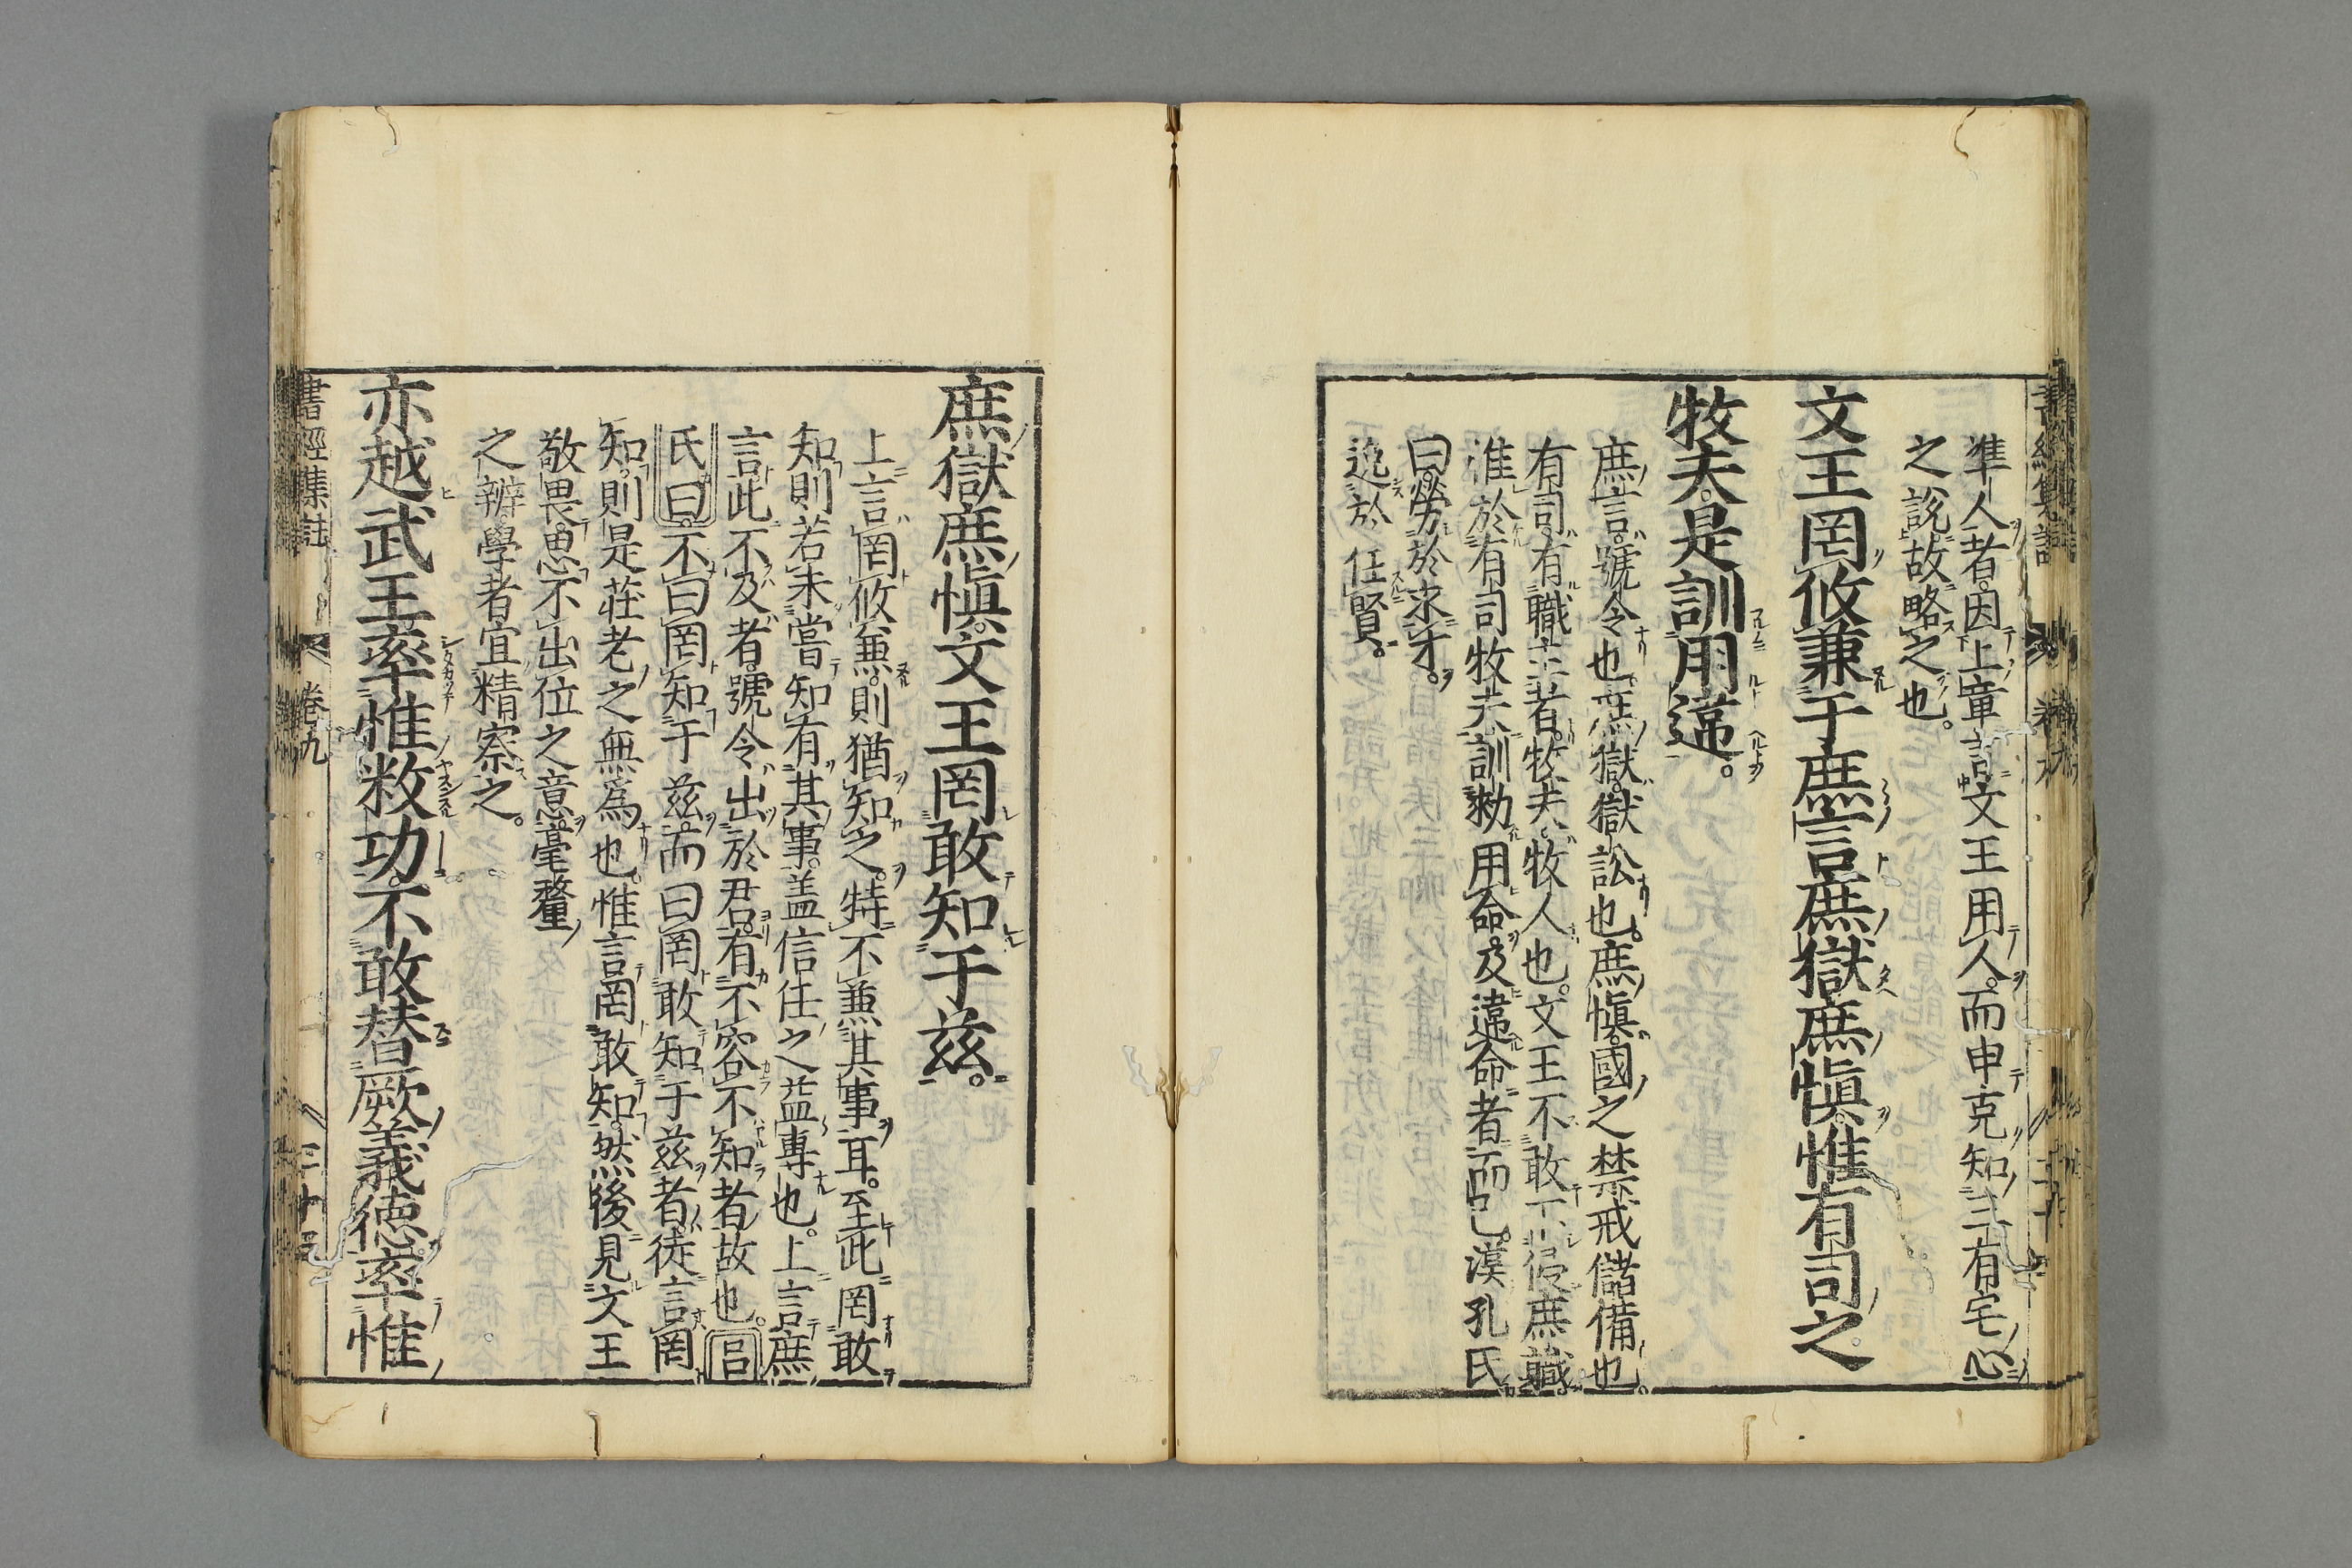 準人者。因上章言文王用人。而申克知三有宅心
之說。故略之也。
文王罔攸兼于庶言庶獄庶愼。惟有司之
牧夫。是訓用違。
庶言。號令也。庶獄。獄訟也。庶愼。國之禁戒儲備也。
有司。有職主者。牧夫。牧人也。文王不敢下侵庶職。
惟於有司牧夫。訓勑用命。及違命者而已。漢孔氏
曰。勞於求才。
逸於任賢。
庶獄庶愼。文王罔敢知于茲。
上言罔攸兼。則猶知之。特不兼其事耳。至此罔敢
知則若未嘗知有其事。蓋信任之益專也。上言庶
言。此不及者。號令出於君。有不容不知者故也。呂
氏曰。不曰罔知于茲。而曰罔敢知于茲者。徒言罔
知。則是莊老之無爲也。惟言罔敢知。然後見文王
敬畏。思不出位之意。毫釐
之辨。學者宜精察之。
亦越武王率惟敉功。不敢替厥義德。率惟
書經集註 卷九 三十五